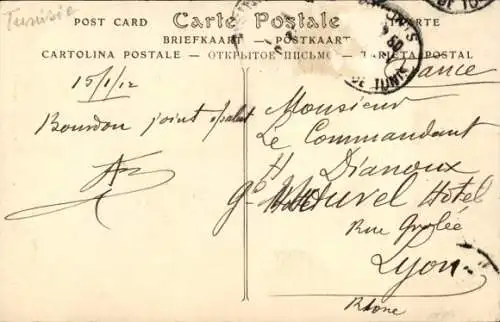 Tunisie
POST CARD Carte Postale
BRIEFKAART — POSTKAART
CARTOLINA POSTALE — ОТКРЫТОЕ ПИСЬМО — TARJETA POSTAL
DE TUNIS
France
15/1/12
Monsieur
Bourdon joint
Le Commandant
H Dianoux
Hotel
Rue Grolée
Lyon
Rhone